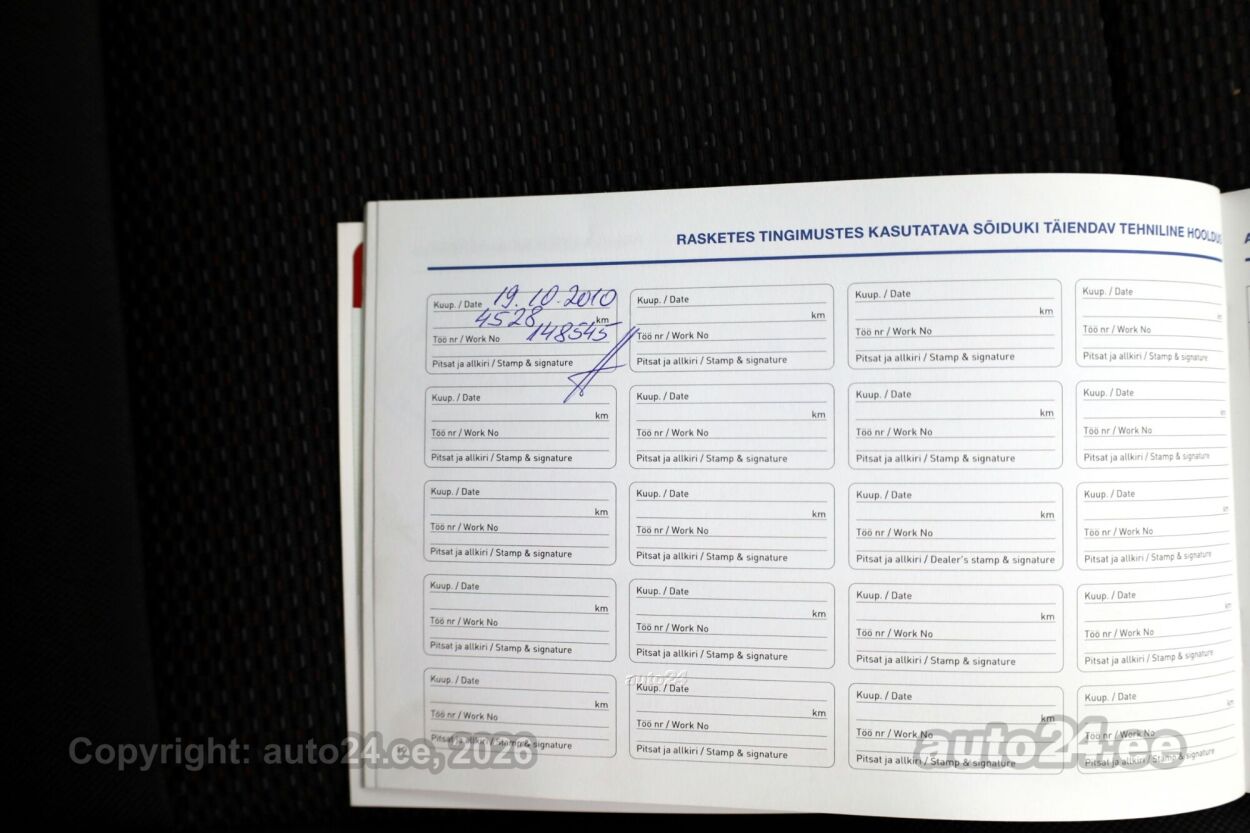 RASKETES TINGIMUSTES KASUTATAVA SÕIDUKI TÄIENDAV TEHNILINE HOOLDUS
Kuup. / Date 19.10.2010
4528 km
Töö nr / Work No 148545
Pitsat ja allkiri / Stamp & signature
Kuup. / Date
km
Töö nr / Work No
Pitsat ja allkiri / Stamp & signature
Kuup. / Date
km
Töö nr / Work No
Pitsat ja allkiri / Stamp & signature
Kuup. / Date
km
Töö nr / Work No
Pitsat ja allkiri / Stamp & signature
Kuup. / Date
km
Töö nr / Work No
Pitsat ja allkiri / Stamp & signature
Kuup. / Date
km
Töö nr / Work No
Pitsat ja allkiri / Stamp & signature
Kuup. / Date
km
Töö nr / Work No
Pitsat ja allkiri / Stamp & signature
Kuup. / Date
km
Töö nr / Work No
Pitsat ja allkiri / Stamp & signature
Kuup. / Date
km
Töö nr / Work No
Pitsat ja allkiri / Stamp & signature
Kuup. / Date
km
Töö nr / Work No
Pitsat ja allkiri / Stamp & signature
Kuup. / Date
km
Töö nr / Work No
Pitsat ja allkiri / Dealer's stamp & signature
Kuup. / Date
km
Töö nr / Work No
Pitsat ja allkiri / Stamp & signature
Kuup. / Date
km
Töö nr / Work No
Pitsat ja allkiri / Stamp & signature
Kuup. / Date
km
Töö nr / Work No
Pitsat ja allkiri / Stamp & signature
Kuup. / Date
km
Töö nr / Work No
Pitsat ja allkiri / Stamp & signature
Kuup. / Date
km
Töö nr / Work No
Pitsat ja allkiri / Stamp & signature
Kuup. / Date
km
Töö nr / Work No
Pitsat ja allkiri / Stamp & signature
auto24
Kuup. / Date
km
Töö nr / Work No
Pitsat ja allkiri / Stamp & signature
Kuup. / Date
km
Töö nr / Work No
Pitsat ja allkiri / Stamp & signature
Kuup. / Date
km
Töö nr / Work No
Pitsat ja allkiri / Stamp & signature
Copyright: auto24.ee, 2026
auto24.ee